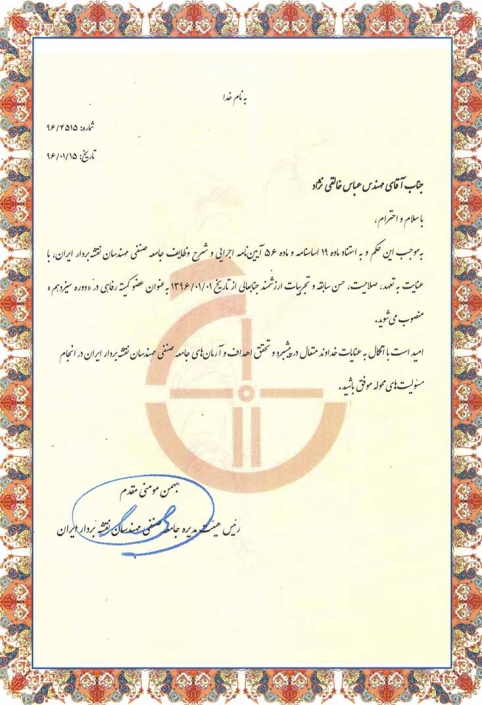 به نام خدا
شماره: ۹۶/۴۵۱۵
تاریخ: ۹۶/۰۱/۱۵
جناب آقای مهندس عباس خالقی نژاد
با سلام و احترام،
به موجب این حکم و به استناد ماده ۱۹ اساسنامه و ماده ۵۶ آیین‌نامه اجرایی و شرح وظایف جامعه صنفی مهندسان نقشه‌بردار ایران، با
عنایت به تعهد، صلاحیت، حسن سابقه و تجربیات ارزشمند جنابعالی از تاریخ ۱۳۹۶/۰۱/۰۱ به عنوان عضو کمیته رفاهی در «دوره سیزدهم»
منصوب می‌شوید.
امید است با اتکال به عنایات خداوند متعال در پیشبرد و تحقق اهداف و آرمان‌های جامعه صنفی مهندسان نقشه‌بردار ایران در انجام
مسئولیت‌های محوله موفق باشید.
بهمن مومنی مقدم
رئیس هیئت مدیره جامعه صنفی مهندسان نقشه بردار ایران